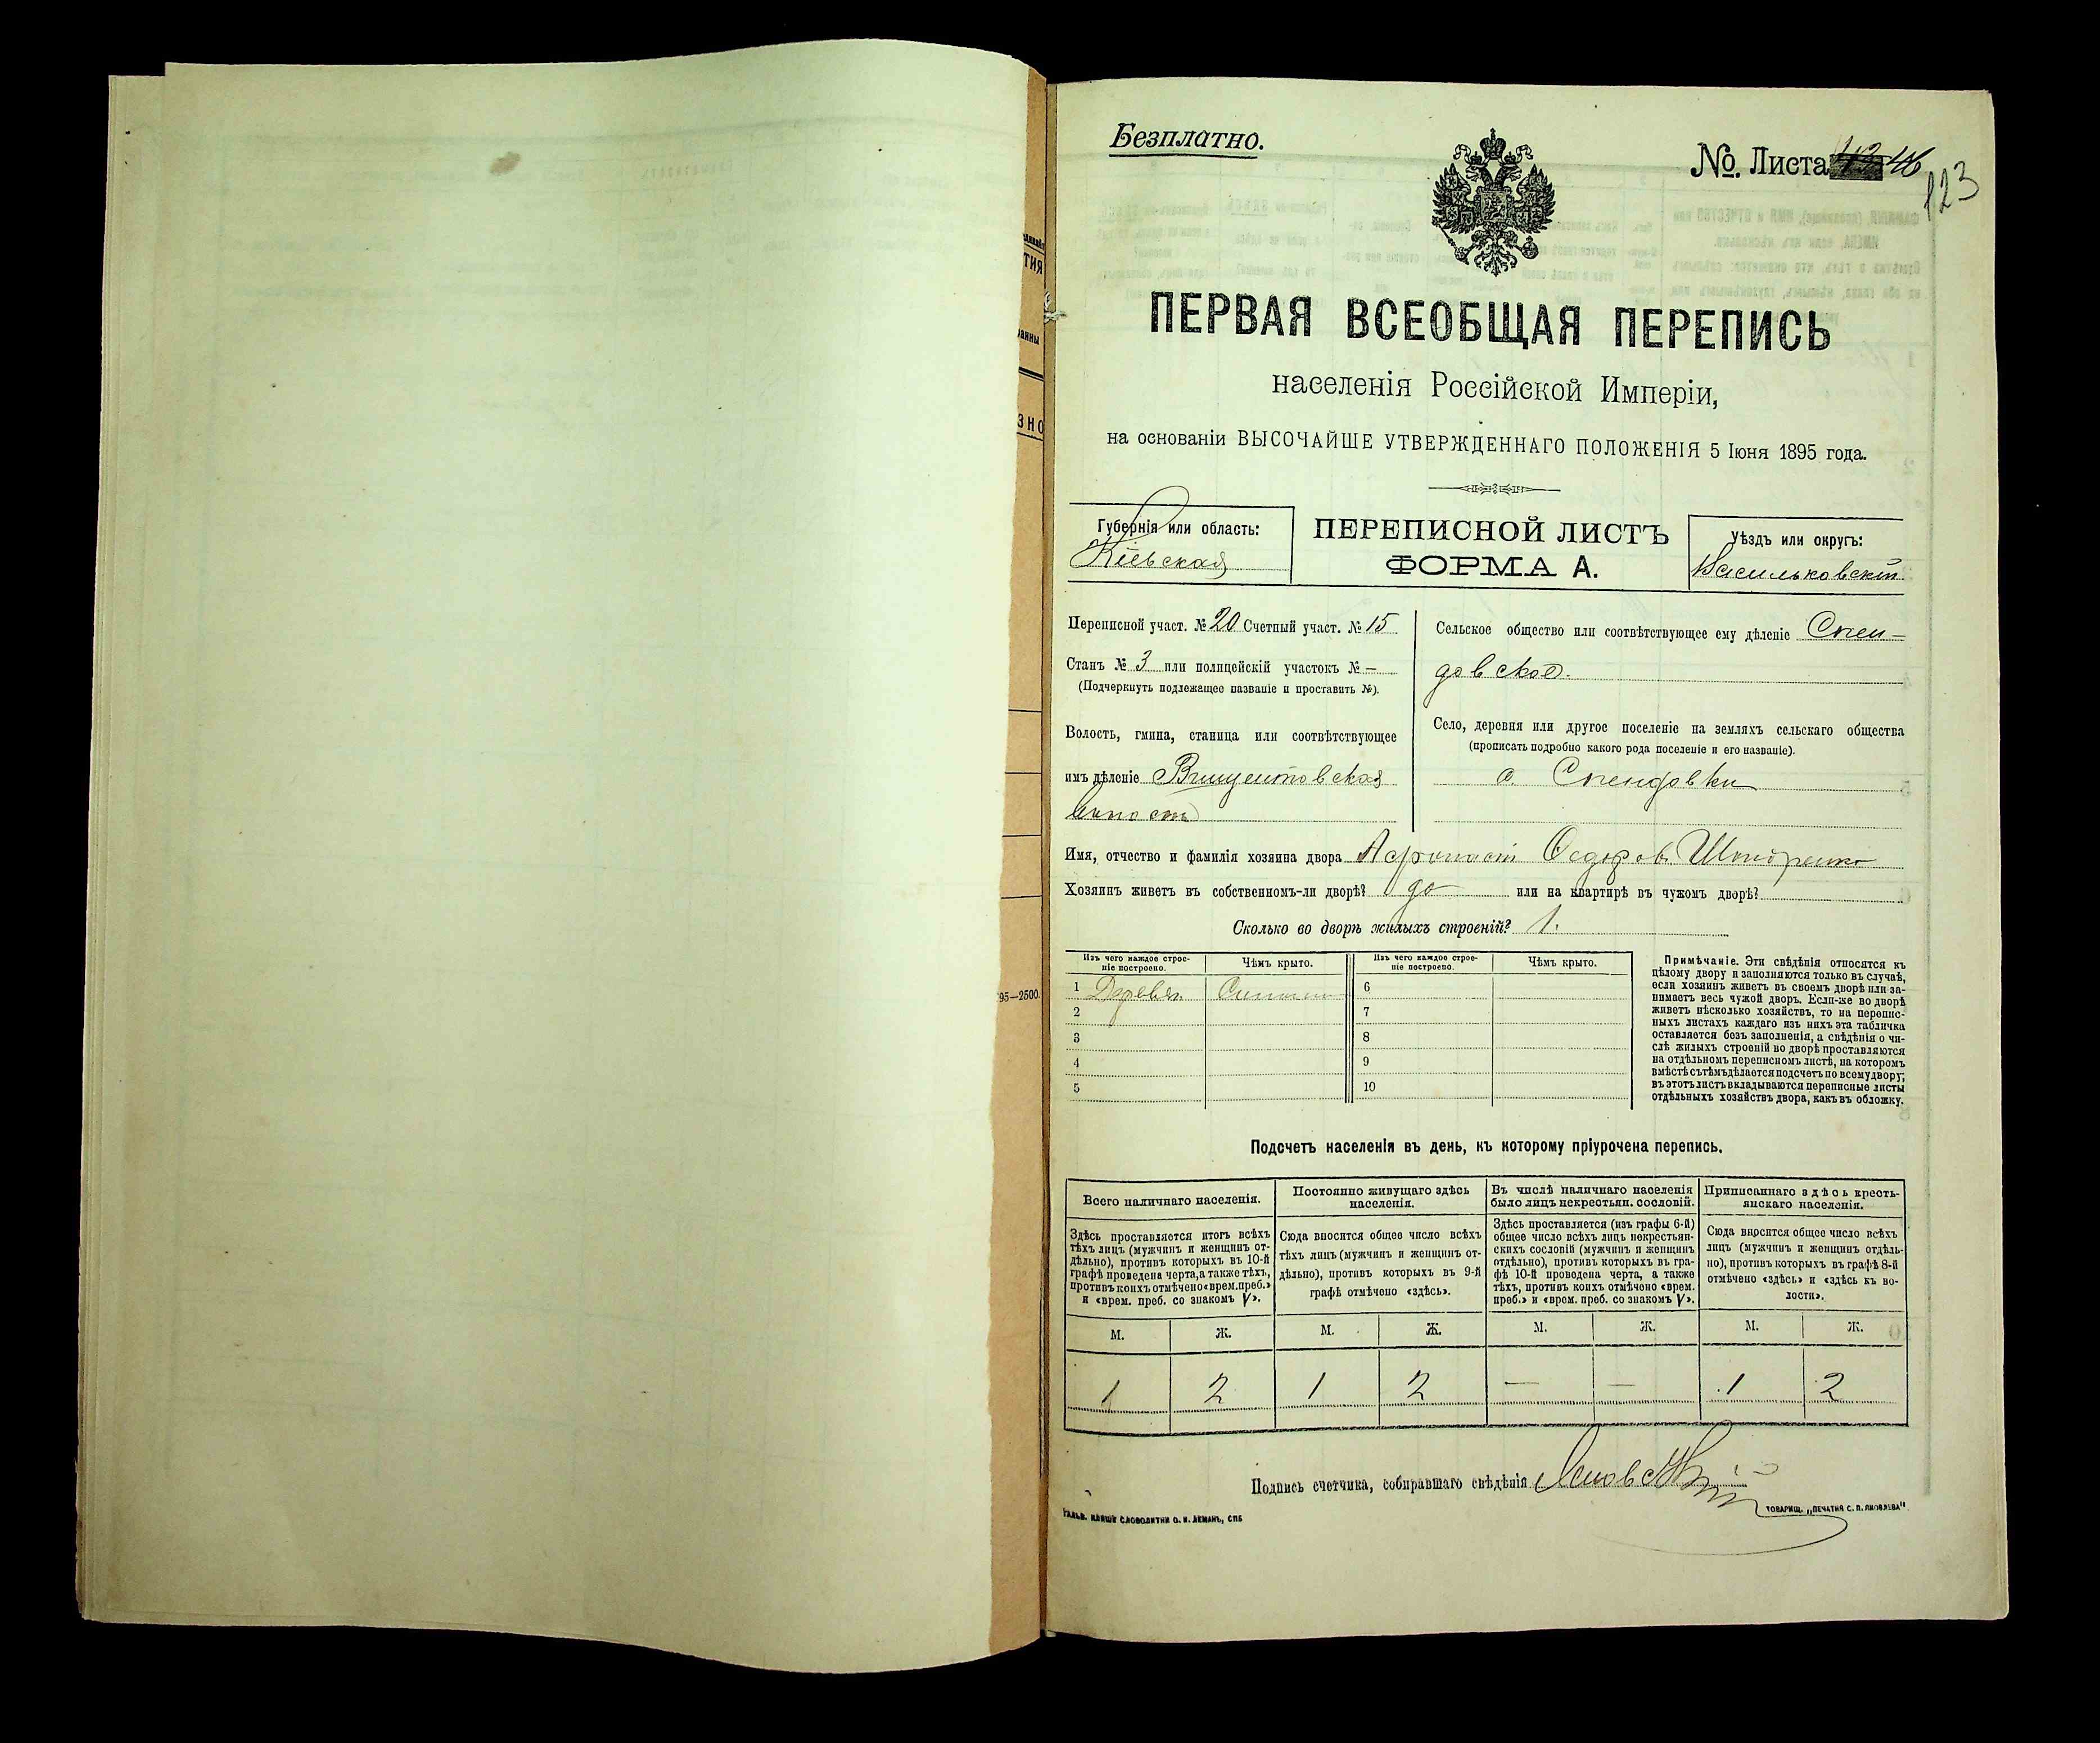 Безплатно.
№. Листа 46
123
ПЕРВАЯ ВСЕОБЩАЯ ПЕРЕПИСЬ
населенія Россійской Имперіи,
на основаніи ВЫСОЧАЙШЕ УТВЕРЖДЕННАГО ПОЛОЖЕНІЯ 5 Іюня 1895 года.
Губернія или область:
Кіевская
ПЕРЕПИСНОЙ ЛИСТЪ
ФОРМА А.
Уѣздъ или округъ:
Васильковскій
Переписной участ. № 20 Счетный участ. № 15
Станъ № 3 или полицейскій участокъ № —
(Подчеркнуть подлежащее названіе и проставить №).
Волость, гмина, станица или соотвѣтствующее
имъ дѣленіе Винцентовская
Сельское общество или соотвѣтствующее ему дѣленіе Спен-
довское.
Село, деревня или другое поселеніе на земляхъ сельскаго общества
(прописать подробно какого рода поселеніе и его названіе).
с. Спендовки
Имя, отчество и фамилія хозяина двора
Хозяинъ живетъ въ собственномъ-ли дворѣ? да или на квартирѣ въ чужомъ дворѣ?
Сколько во дворѣ жилыхъ строеній? 1.
Изъ чего каждое строе-
ніе построено.
Чѣмъ крыто.
Изъ чего каждое строе-
ніе построено.
Чѣмъ крыто.
1 Деревян. 6
2 7
3 8
4 9
5 10
Примѣчаніе. Эти свѣдѣнія относятся къ
цѣлому двору и заполняются только въ случаѣ,
если хозяинъ живетъ въ своемъ дворѣ или за-
нимаетъ весь чужой дворъ. Если-же во дворѣ
живетъ нѣсколько хозяйствъ, то на перепис-
ныхъ листахъ каждаго изъ нихъ эта табличка
оставляется безъ заполненія, а свѣдѣнія о чи-
слѣ жилыхъ строеній во дворѣ проставляются
на отдѣльномъ переписномъ листѣ, на которомъ
вмѣстѣ съ тѣмъ дѣлается подсчетъ по всему двору;
въ этотъ листъ вкладываются переписные листы
отдѣльныхъ хозяйствъ двора, какъ въ обложку.
Подсчетъ населенія въ день, къ которому пріурочена перепись.
Всего наличнаго населенія.
Постоянно живущаго здѣсь
населенія.
Въ числѣ наличнаго населенія
было лицъ некрестьян. сословій.
Приписаннаго здѣсь кресть-
янскаго населенія.
Здѣсь проставляется итогъ всѣхъ
тѣхъ лицъ (мужчинъ и женщинъ от-
дѣльно), противъ которыхъ въ 10-й
графѣ проведена черта, а также тѣхъ,
противъ коихъ отмѣчено «врем. преб.»
и «врем. преб. со знакомъ V».
Сюда вносится общее число всѣхъ
тѣхъ лицъ (мужчинъ и женщинъ от-
дѣльно), противъ которыхъ въ 9-й
графѣ отмѣчено «здѣсь».
Здѣсь проставляется (изъ графы 6-й)
общее число всѣхъ лицъ некрестьян-
скихъ сословій (мужчинъ и женщинъ
отдѣльно), противъ которыхъ въ гра-
фѣ 10-й проведена черта, а также
тѣхъ, противъ коихъ отмѣчено «врем.
преб.» и «врем. преб. со знакомъ V».
Сюда вносится общее число всѣхъ
лицъ (мужчинъ и женщинъ отдѣль-
но), противъ которыхъ въ графѣ 8-й
отмѣчено «здѣсь» и «здѣсь къ во-
лости».
М. Ж. М. Ж. М. Ж. М. Ж.
1 2 1 2 — — 1 2
Подпись счетчика, собиравшаго свѣдѣнія
ГАЛЬВ. КЛИШЕ СЛОВОЛИТНИ О. И. ЛЕМАНЪ, СПБ
ТОВАРИЩ. „ПЕЧАТНЯ С. П. ЯКОВЛЕВА"
ТИЯ
ЗНО
95—2500.